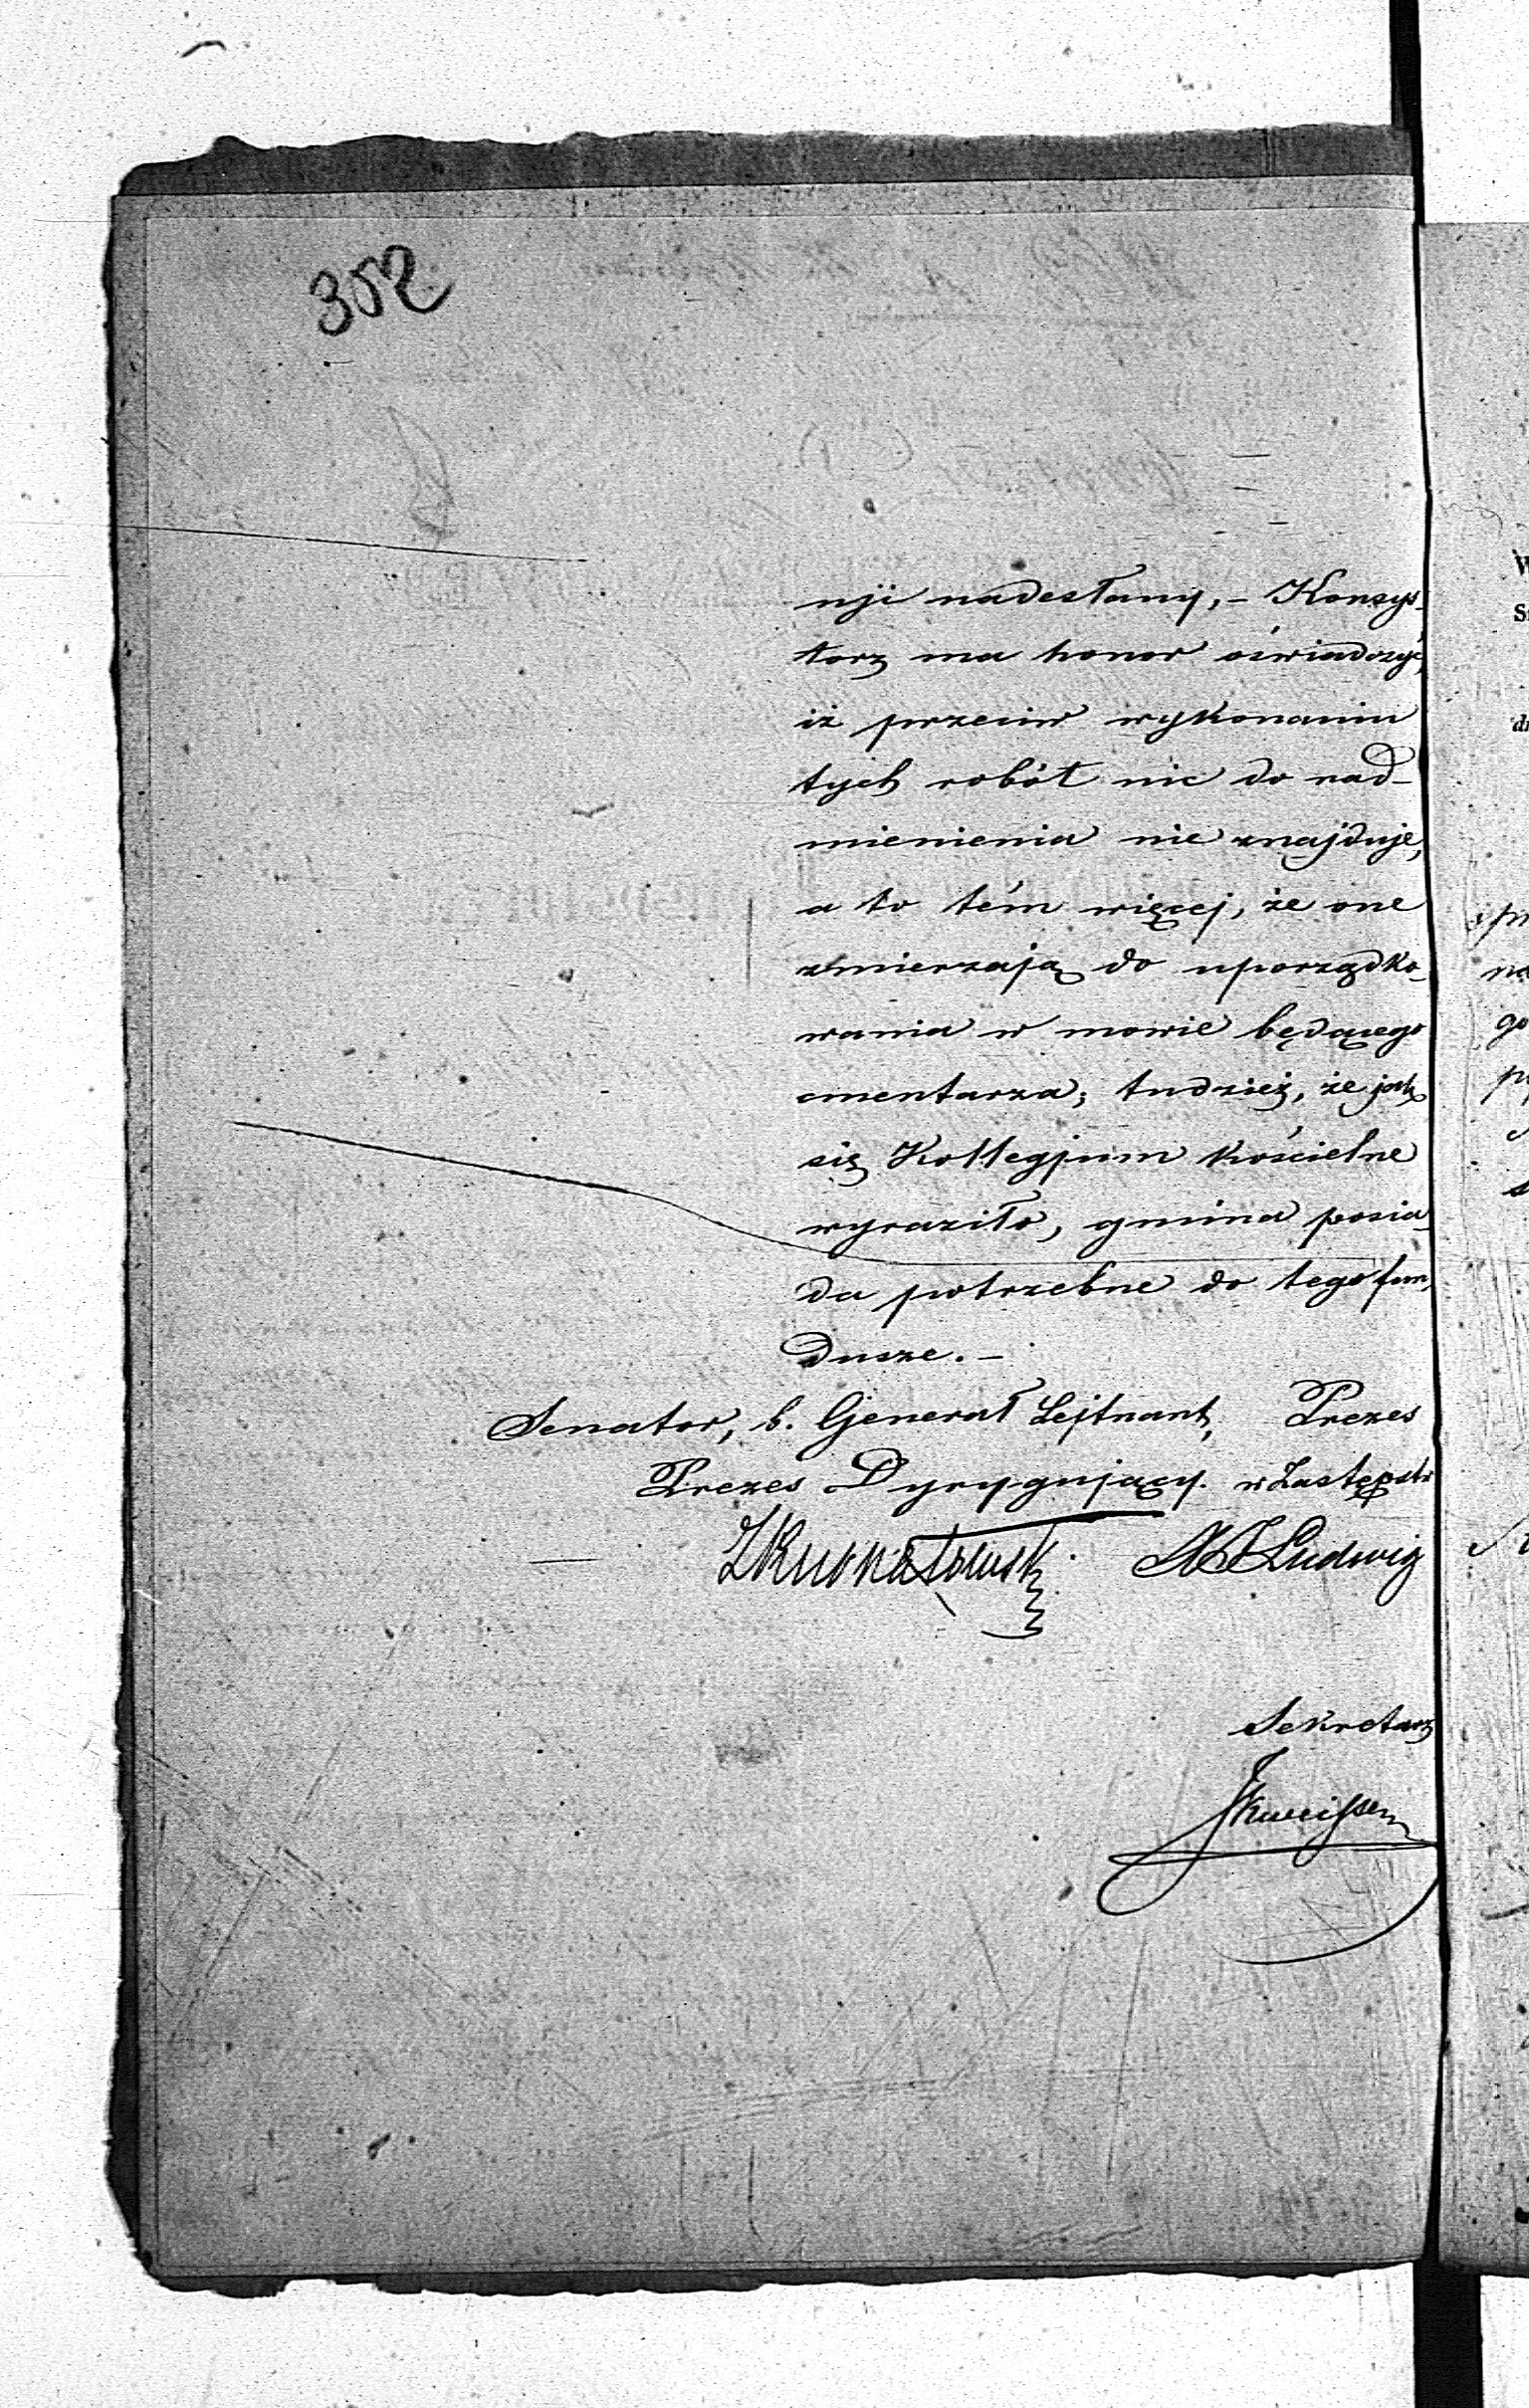 302
nji nadesłany, – Konsys-
torz ma honor oświadczyć,
iż przeciw wykonaniu
tych robót nic do nad-
mienienia nie znajduje,
a to tém więcej, że one
zmierzają do uporządko-
wania w mowie będącego
cmentarza; tudzież, że jak
się Kollegjum kościelne
wyraziło, gmina posia-
da potrzebne do tego fun-
dusze. –
Senator, b. Generał Lejtnant, Prezes
Prezes Dyrygujący. w Zastępstw
Ludwig
Sekretarz